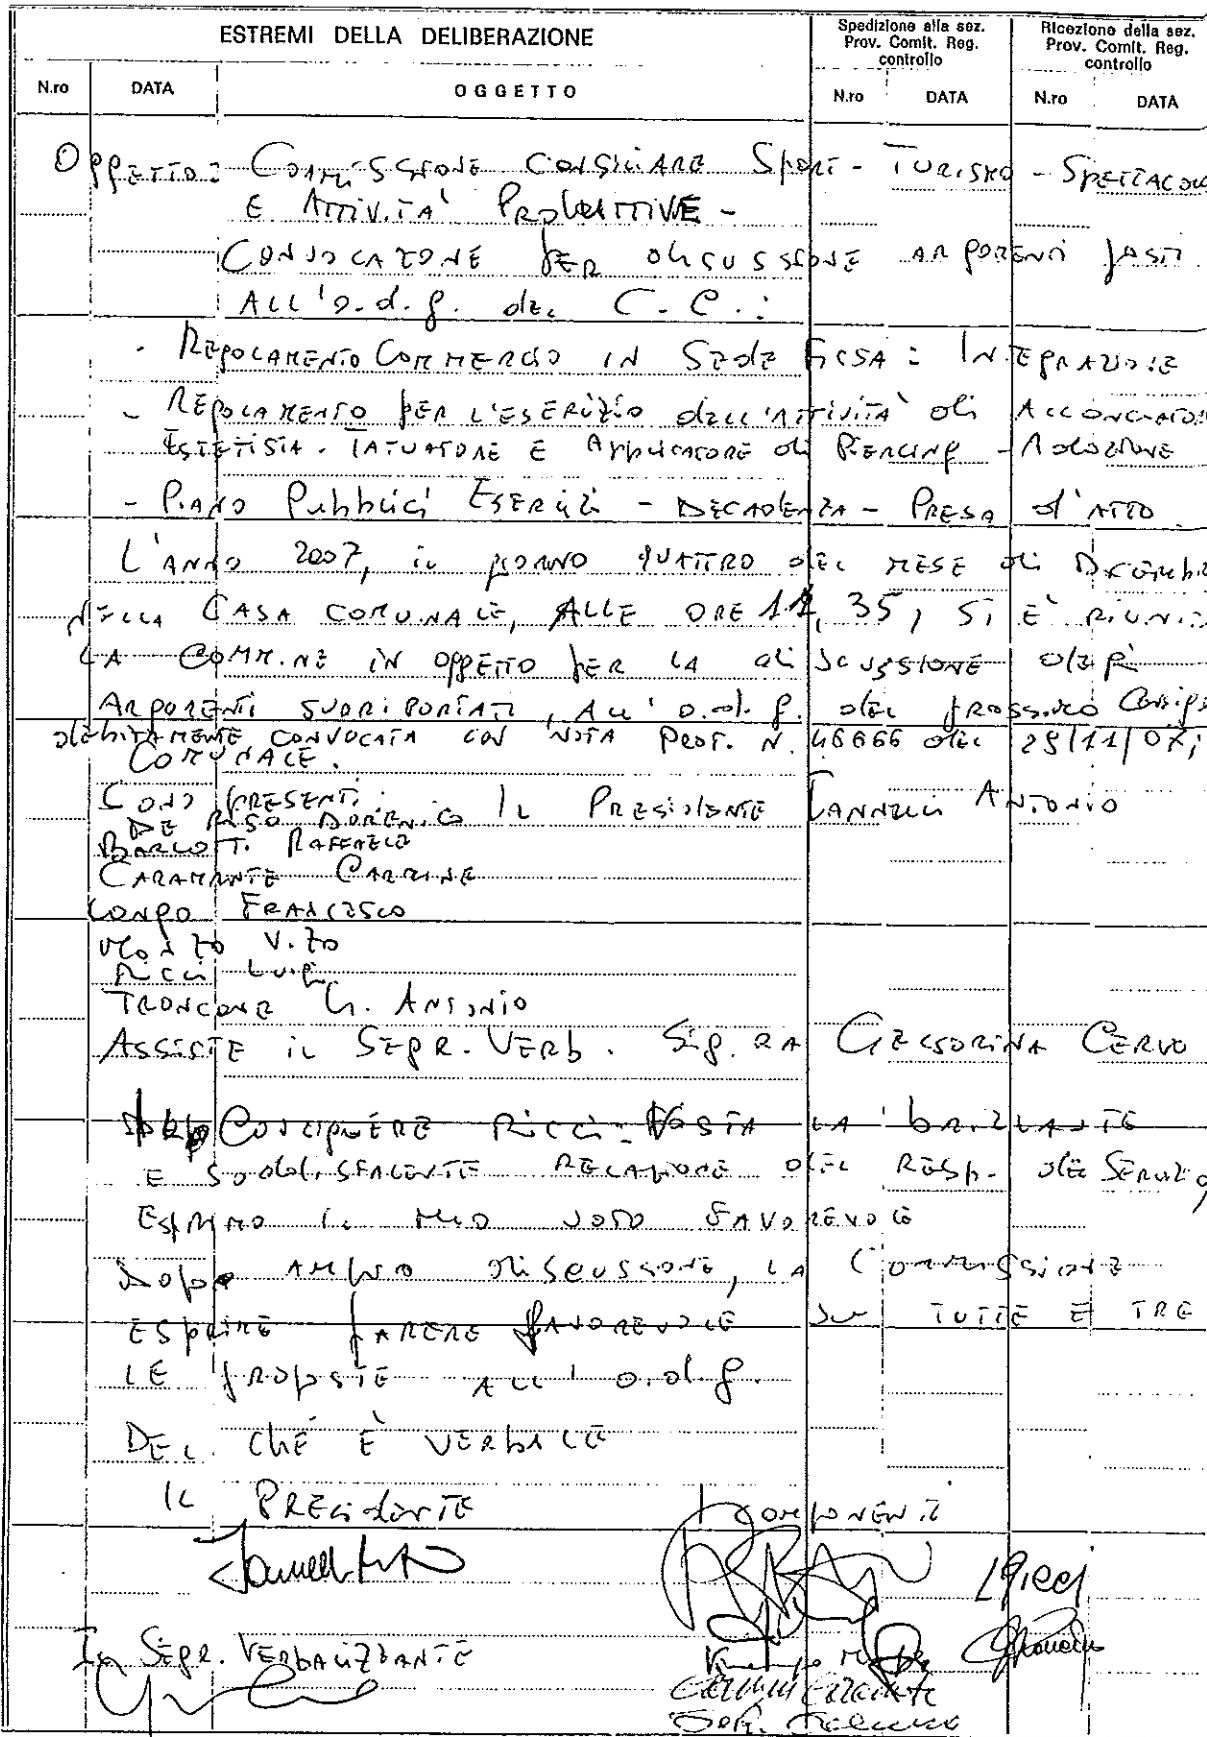 ESTREMI DELLA DELIBERAZIONE
Spedizione alla sez. Prov. Comit. Reg. controllo
Ricezione della sez. Prov. Comit. Reg. controllo
N.ro DATA OGGETTO N.ro DATA N.ro DATA
Oggetto: Commissione Consiliare Sport - Turismo - Spettacolo
E Attività Produttive -
Convocazione per discussione argomenti posti
All'o.d.g. del C.C.:
- Regolamento Commercio in Sede Fissa: Integrazione
- Regolamento per l'esercizio dell'attività di Acconciatore
Estetista - Tatuatore e Applicatore di Piercing - Adozione
- Piano Pubblici Esercizi - Decadenza - Presa d'atto
L'anno 2007, il giorno quattro del mese di Dicembre
nella Casa comunale, alle ore 11,35, si è riunita
la Comm.ne in oggetto per la discussione degli
argomenti suoriportati, all'o.d.g. del prossimo Consiglio
debitamente convocata con nota Prot. N. 46666 del 29/11/07;
Comunale.
Sono presenti: Il Presidente Iannelli Antonio
De Riso Domenico
Barlotti Raffaele
Caramante Carmine
Longo Francesco
Vito
Ricci Luigi
Troncone G. Antonio
Assiste il Segr. Verb. Sig.ra Gessorina Cervo
Consigliere Ricci - Vista la brillante
e soddisfacente relazione del Resp. del Servizio
Esprimo il mio voto favorevole
Dopo ampia discussione, la Commissione
esprime parere favorevole su tutte e tre
le proposte all'o.d.g.
Del che è verbale
Il Presidente I componenti
LRicci
Il Segr. Verbalizzante